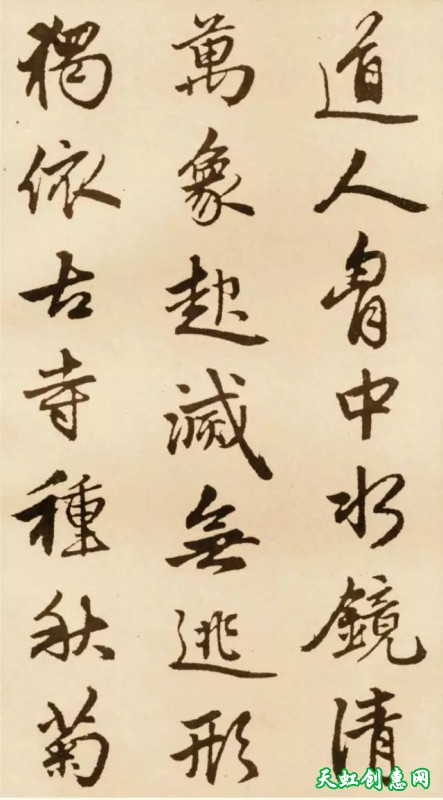 道人胷中水鏡清
萬象起滅無逃形
獨依古寺種秋菊
天虹创惠网